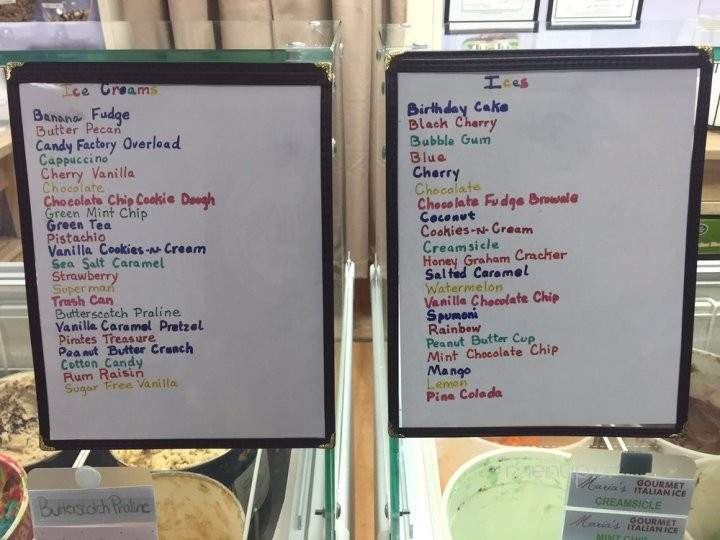 Ice Creams
Banana Fudge
Butter Pecan
Candy Factory Overload
Cappuccino
Cherry Vanilla
Chocolate
Chocolate Chip Cookie Dough
Green Mint Chip
Green Tea
Pistachio
Vanilla Cookies-N-Cream
Sea Salt Caramel
Strawberry
Superman
Trash Can
Butterscotch Praline
Vanilla Caramel Pretzel
Pirates Treasure
Peanut Butter Crunch
Cotton Candy
Rum Raisin
Sugar Free Vanilla
Ices
Birthday Cake
Black Cherry
Bubble Gum
Blue
Cherry
Chocolate
Chocolate Fudge Brownie
Coconut
Cookies-N-Cream
Creamsicle
Honey Graham Cracker
Salted Caramel
Watermelon
Vanilla Chocolate Chip
Spumoni
Rainbow
Peanut Butter Cup
Mint Chocolate Chip
Mango
Lemon
Pina Colada
Butterscotch Praline
Maria's GOURMET ITALIAN ICE
CREAMSICLE
Maria's GOURMET ITALIAN ICE